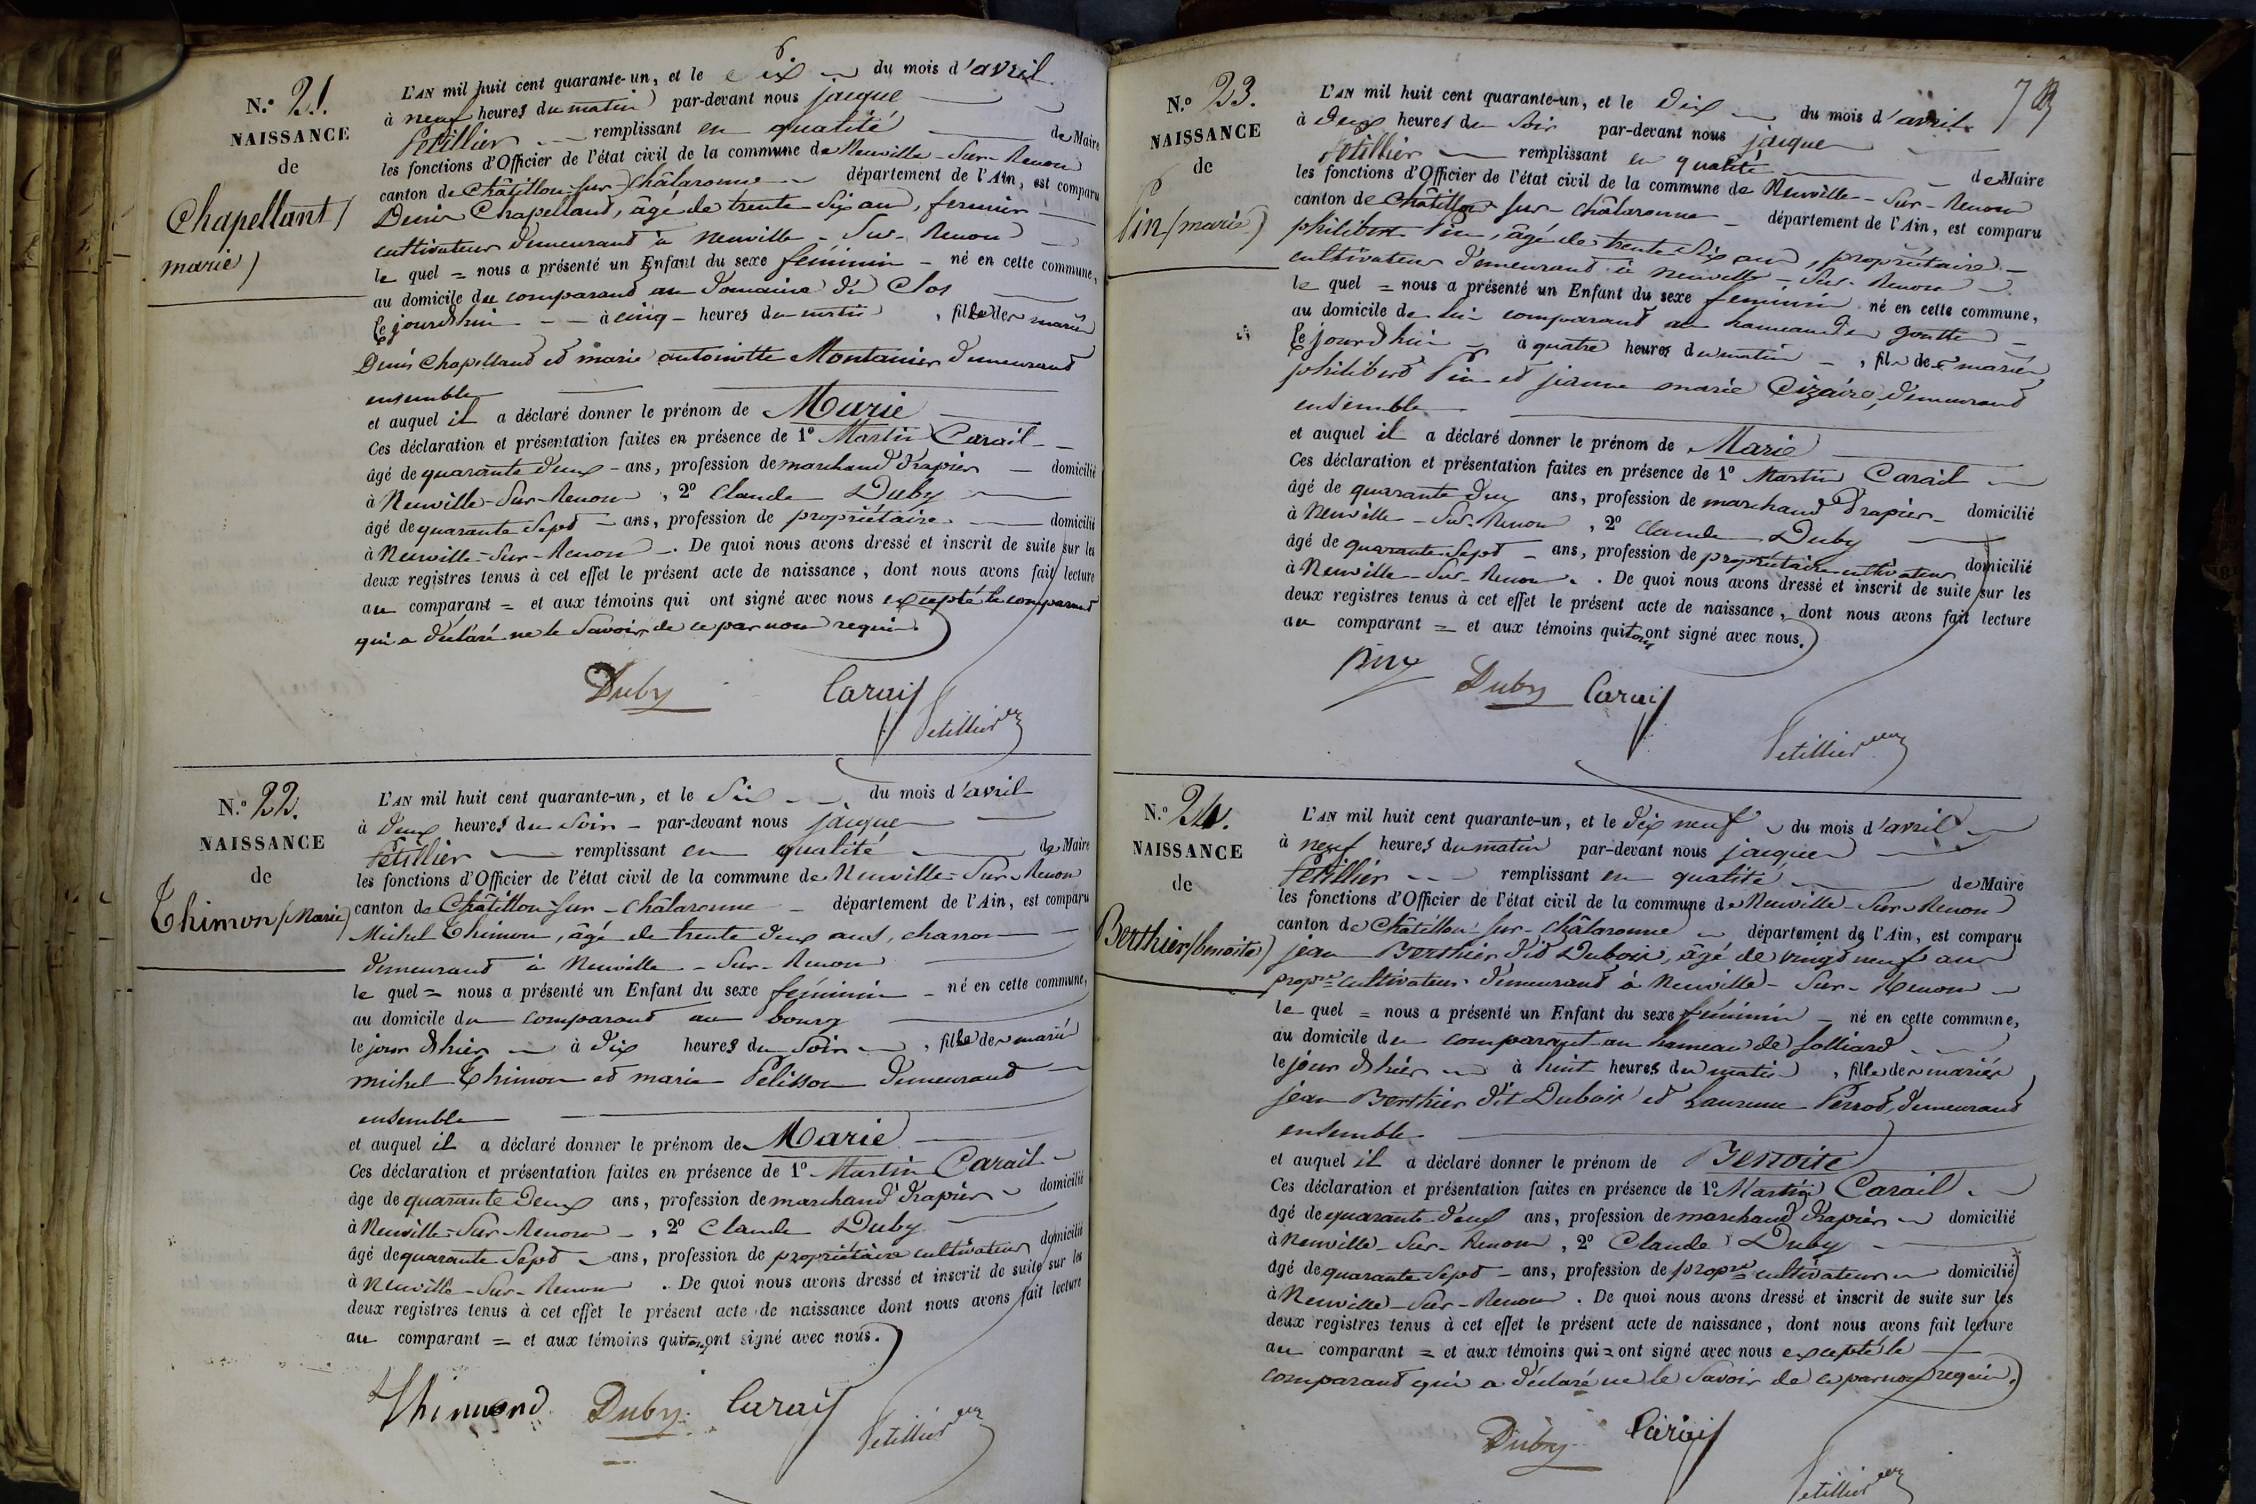 N.º 21.
NAISSANCE
de
Chapellant /
marie)
L'AN mil huit cent quarante-un, et le six du mois d'avril
à neuf heures du matin par-devant nous jacque
Petillier remplissant en qualité de Maire
les fonctions d'Officier de l'état civil de la commune de Neuville-Sur-Renon
canton de Châtillon-sur-Châlaronne département de l'Ain, est comparu
Denis Chapelland, âgé de trente six ans, fermier
cultivateur demeurand à Neuville-Sur-Renon
le quel = nous a présenté un Enfant du sexe féminin - né en cette commune,
au domicile du comparand au domaine du Clos
Ce jourdhui à cinq heures du matin, fille des mariés
Denis Chapelland et marie antoinette Montanier demeurand
ensemble
et auquel il a déclaré donner le prénom de Marie
Ces déclaration et présentation faites en présence de 1º Martin Carail
âgé de quarante deux - ans, profession de marchand drapier domicilié
à Neuville-Sur-Renon, 2º Claude Duby
âgé de quarante sept - ans, profession de propriétaire domicilié
à Neuville-Sur-Renon. De quoi nous avons dressé et inscrit de suite sur les
deux registres tenus à cet effet le présent acte de naissance, dont nous avons fait lecture
au comparant = et aux témoins qui ont signé avec nous excepté le comparand
qui a déclaré ne le savoir de ce par nous requis.
Duby Carail
Petillier
N.º 22.
NAISSANCE
de
Thimon (Marie)
L'AN mil huit cent quarante-un, et le six du mois d'avril
à deux heures du soir - par-devant nous jacque
Petillier remplissant en qualité de Maire
les fonctions d'Officier de l'état civil de la commune de Neuville-Sur-Renon
canton de Châtillon-sur-Châlaronne département de l'Ain, est comparu
Michel Thimon, âgé de trente deux ans, charron
demeurand à Neuville-Sur-Renon
le quel = nous a présenté un Enfant du sexe féminin - né en cette commune,
au domicile du comparand au bourg
le jour d'hier à dix heures du soir, fille des mariés
michel Thimon et marie Pelisson demeurand
ensemble
et auquel il a déclaré donner le prénom de Marie
Ces déclaration et présentation faites en présence de 1º Martin Carail
âgé de quarante deux ans, profession de marchand drapier domicilié
à Neuville-Sur-Renon, 2º Claude Duby
âgé de quarante sept ans, profession de propriétaire cultivateur domicilié
à Neuville-Sur-Renon. De quoi nous avons dressé et inscrit de suite sur les
deux registres tenus à cet effet le présent acte de naissance dont nous avons fait lecture
au comparant = et aux témoins qui tous ont signé avec nous.
Thimond Duby Carail
Petillier
N.º 23.
NAISSANCE
de
Pin (marie)
L'AN mil huit cent quarante-un, et le dix du mois d'avril
à deux heures du soir par-devant nous jacque
Petillier remplissant en qualité de Maire
les fonctions d'Officier de l'état civil de la commune de Neuville-Sur-Renon
canton de Châtillon sur-Châlaronne département de l'Ain, est comparu
philibert Pin, âgé de trente six ans, propriétaire
cultivateur demeurand à Neuville-Sur-Renon
le quel = nous a présenté un Enfant du sexe féminin né en cette commune,
au domicile de lui comparand au hameau des gouttes
Ce jourdhui à quatre heures du matin, fille des mariés
philiberd Pin et jeanne marie Cizaire, demeurand
ensemble
et auquel il a déclaré donner le prénom de Marie
Ces déclaration et présentation faites en présence de 1º Martin Carail
âgé de quarante deux ans, profession de marchand drapier domicilié
à Neuville-Sur-Renon, 2º Claude Duby
âgé de quarante sept - ans, profession de propriétaire cultivateur domicilié
à Neuville-Sur-Renon. De quoi nous avons dressé et inscrit de suite sur les
deux registres tenus à cet effet le présent acte de naissance, dont nous avons fait lecture
au comparant = et aux témoins qui tous ont signé avec nous.
Duby Carail
Petillier
N.º 24.
NAISSANCE
de
Berthier (benoite)
L'AN mil huit cent quarante-un, et le dix neuf du mois d'avril
à neuf heures du matin par-devant nous jacque
Petillier remplissant en qualité de Maire
les fonctions d'Officier de l'état civil de la commune de Neuville-Sur-Renon
canton de Châtillon-sur-Châlaronne département de l'Ain, est comparu
jean Berthier dit Dubois, âgé de vingt neuf ans
propre cultivateur demeurand à Neuville-Sur-Renon
le quel = nous a présenté un Enfant du sexe féminin - né en cette commune,
au domicile du comparant au hameau de folliard
le jour d'hier à huit heures du matin, fille des mariés
jean Berthier dit Dubois et Laurence Perrod, demeurand
ensemble
et auquel il a déclaré donner le prénom de Benoite
Ces déclaration et présentation faites en présence de 1º Martin Carail
âgé de quarante deux ans, profession de marchand drapier domicilié
à Neuville-Sur-Renon, 2º Claude Duby
âgé de quarante sept - ans, profession de propre cultivateur domicilié
à Neuville-Sur-Renon. De quoi nous avons dressé et inscrit de suite sur les
deux registres tenus à cet effet le présent acte de naissance, dont nous avons fait lecture
au comparant = et aux témoins qui = ont signé avec nous excepté le
comparand qui a déclaré ne le savoir de ce par nous requis.
Duby Carail
Petillier